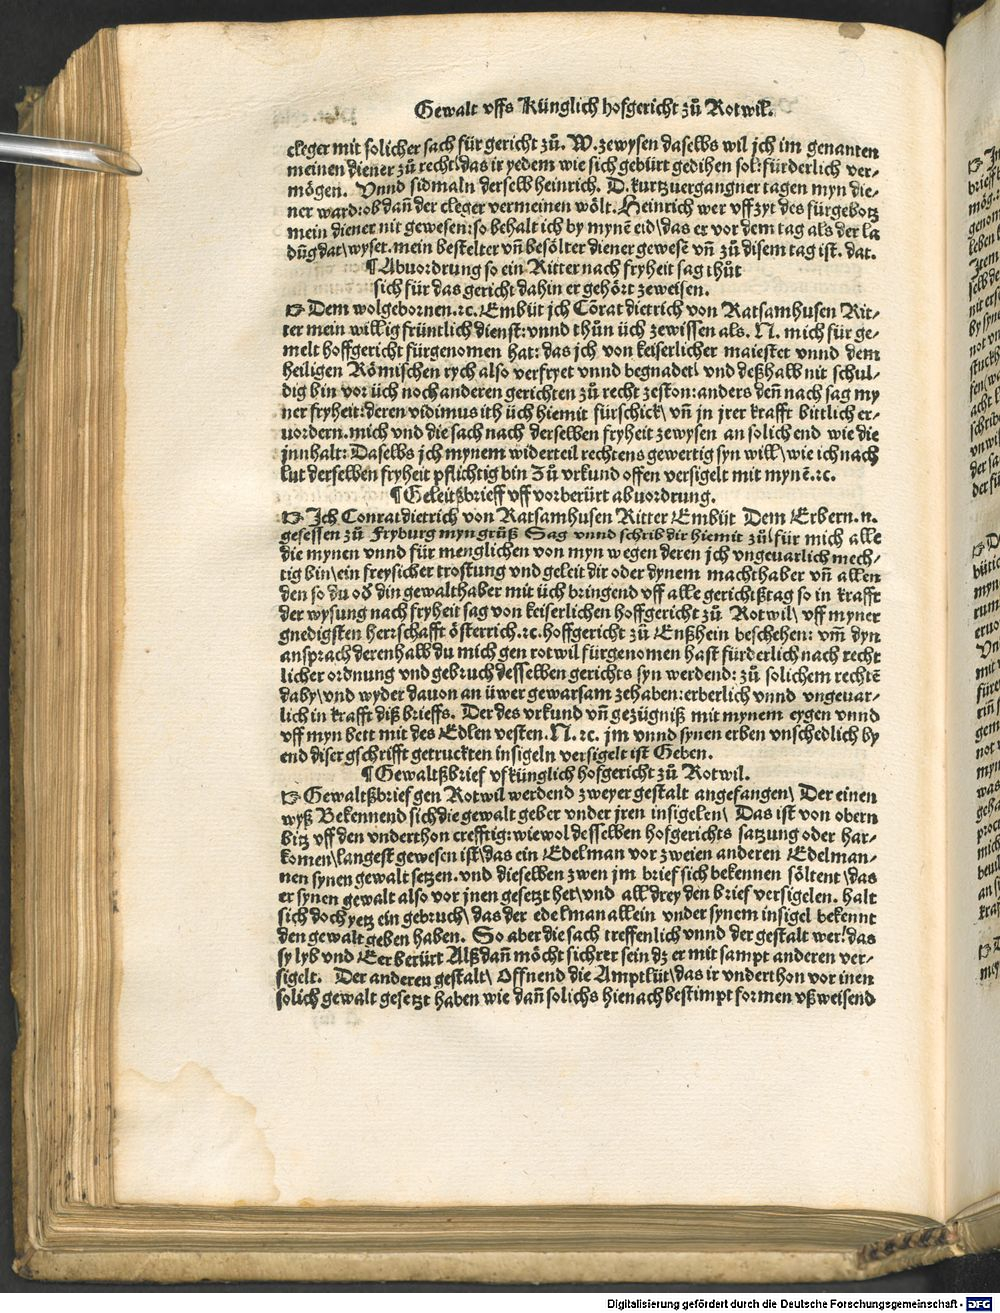 Gewalt vffs Künglich hofgericht zů Rotwil.
cleger mit solicher sach für gericht zů. W. zewysen daselbs wil jch im genanten
meinen diener zů recht\das ir yedem wie sich gebürt gedihen sol: fürderlich ver-
mögen. Vnnd sidmaln derselb heinrich. D. kurtzuergangner tagen myn die-
ner ward: ob dañ der cleger vermeinen wölt. Heinrich wer vff zyt des fürgebotz
mein diener nit gewesen: so behalt ich by mynẽ eid\das er vor dem tag als der la
dũg dat\wyset. mein bestelter vñ besölter diener gewesẽ vñ zů disem tag ist. dat.
¶ Abuordrung so ein Ritter nach fryheit sag thůt
sich für das gericht dahin er gehört zeweisen.
☞ Dem wolgebornen. ꝛc. Embüt jch Cõrat dietrich von Ratsamhusen Rit-
ter mein willig früntlich dienst: vnnd thůn üch zewissen als. N. mich für ge-
melt hoffgericht fürgenomen hat: das jch von keiserlicher maiestet vnnd dem
heiligen Römischen rych also verfryet vnnd begnadet\ vnd deßhalb nit schul-
dig bin vor üch noch anderen gerichten zů recht zeston: anders deñ nach sag my
ner fryheit: deren vidimus ith üch hiemit fürschick\ vñ jn jrer krafft bittlich er-
uordern. mich vnd die sach nach derselben fryheit zewysen an solich end wie die
jnnhalt: Daselbs jch mynem widerteil rechtens gewertig syn will\ wie ich nach
lut derselben fryheit pflichtig bin Zů vrkund offen versigelt mit mynẽ. ꝛc.
¶ Geleitßbrieff vff vorberürt abuordrung.
☞ Jch Conrat dietrich von Ratsamhusen Ritter Embüt Dem Erbern. n.
gesessen zů Fryburg myn grůß Sag vnnd schrib dir hiemit zů\ für mich alle
die mynen vnnd für menglichen von myn wegen deren jch vngeuarlich mech-
tig bin\ ein frey sicher trostung vnd geleit dir oder dynem machthaber vñ allen
den so du oð din gewalthaber mit üch bringend vff alle gerichtßtag so in krafft
der wysung nach fryheit sag von keiserlichen hoffgericht zů Rotwil\ vff myner
gnedigsten herrschafft österrich. ꝛc. hoffgericht zů Enßhein beschehen: vm̃ dyn
ansprach derenhalb du mich gen rotwil fürgenomen hast fürderlich nach recht
licher ordnung vnd gebruch desselben gerichts syn werdend: zů solichem rechtẽ
daby\ vnd wyder dauon an üwer gewarsam zehaben: erberlich vnnd vngeuar-
lich in krafft diß brieffs. Der des vrkund vñ gezügniß mit mynem eygen vnnd
vff myn bett mit des Edlen vesten. N. ꝛc. jm vnnd synen erben vnschedlich by
end diser gschrifft getruckten insigeln versigelt ist Geben.
¶ Gewaltßbrief vf künglich hofgericht zů Rotwil.
☞ Gewaltßbrief gen Rotwil werdend zweyer gestalt angefangen\ Der einen
wyß Bekennend sich die gewalt geber vnder jren insigelen\ Das ist von obern
bitz vff den vnderthon crefftig: wiewol desselben hofgerichts satzung oder har-
komen\ langest gewesen ist\ das ein Edelman vor zweien anderen Edelman-
nen synen gewalt setzen. vnd dieselben zwen jm brief sich bekennen söltent\ das
er synen gewalt also vor jnen gesetzt het\ vnd all drey den brief versigelen. halt
sich doch yetz ein gebruch\ das der edelman allein vnder synem insigel bekennt
den gewalt geben haben. So aber die sach treffenlich vnnd der gestalt wer! das
sy lyb vnd Eer berürt Alß dañ möcht sichrer sein dz er mit sampt anderen ver-
sigelt. Der anderen gestalt\ Offnend die Amptlüt\ das ir vnderthon vor inen
solich gewalt gesetzt haben wie dañ solichs hienach bestimpt formen vßweisend
Digitalisierung gefördert durch die Deutsche Forschungsgemeinschaft - DFG